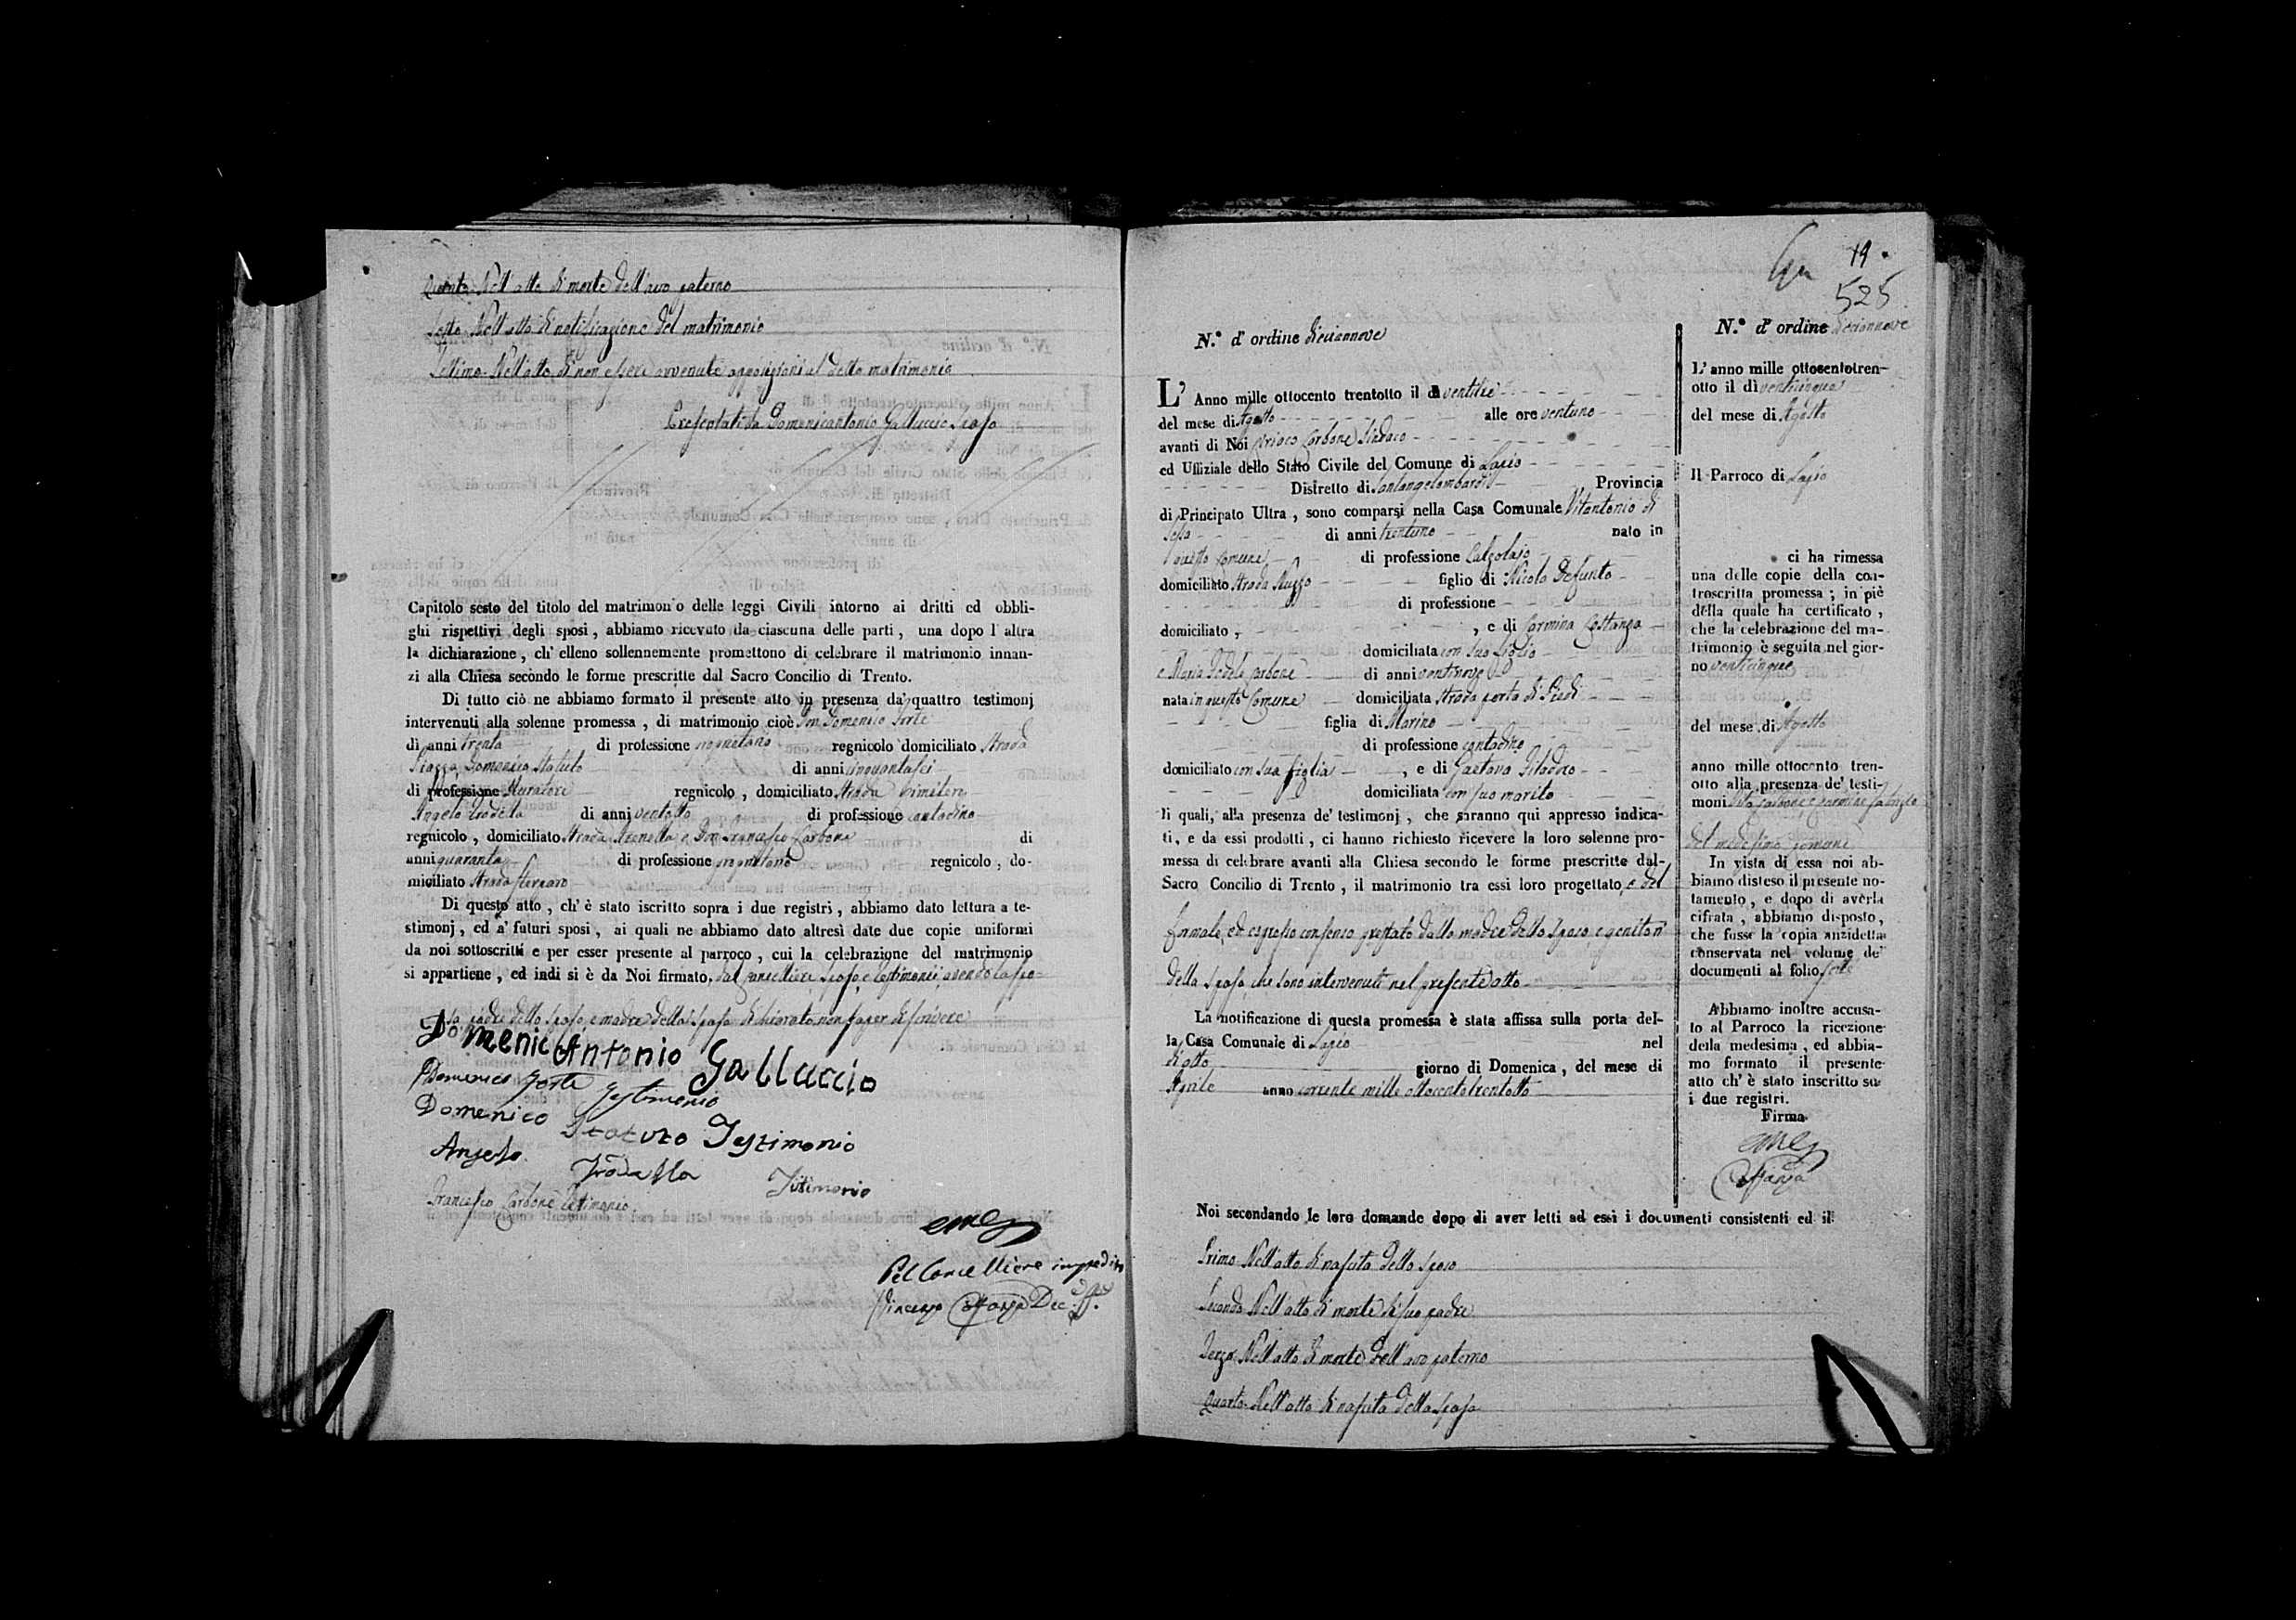 Quinto Nell'atto di morte dell'avo paterno
Sesto Nell'atto di notificazione del matrimonio
Settimo Nell'atto di non essere avvenute opposizioni al detto matrimonio
Presentati da Domenicantonio Galluccio Sposo
Capitolo sesto del titolo del matrimonio delle leggi Civili intorno ai dritti ed obbli-
ghi rispettivi degli sposi, abbiamo ricevuto da ciascuna delle parti, una dopo l'altra
la dichiarazione, ch' elleno sollennemente promettono di celebrare il matrimonio innan-
zi alla Chiesa secondo le forme prescritte dal Sacro Concilio di Trento.
Di tutto ciò ne abbiamo formato il presente atto in presenza da' quattro testimonj
intervenuti alla solenne promessa, di matrimonio cioè Don Domenico Forte
di anni trenta di professione proprietario regnicolo domiciliato Strada
Piazza, Domenico Statuto di anni cinquantasei
di professione Muratore regnicolo, domiciliato Strada Cimitero
Angelo Trodella di anni ventotto di professione contadino
regnicolo, domiciliato Strada e Don Francesco Carbone di
anni quaranta di professione proprietario regnicolo, do-
miciliato Strada
Di questo atto, ch' è stato iscritto sopra i due registri, abbiamo dato lettura a te-
stimonj, ed a' futuri sposi, ai quali ne abbiamo dato altresì date due copie uniformi
da noi sottoscritti e per esser presente al parroco, cui la celebrazione del matrimonio
si appartiene, ed indi si è da Noi firmato, dal Cancelliere Sposo, e testimonii avendo la spo-
sa padre dello sposo, e madre della sposa dichiarato non saper di scrivere
Domenic Antonio Galluccio
Domenico Forte testimonio
Domenico Statuto Testimonio
Angelo Trodella Testimonio
Francesco Carbone testimonio
Pel Cancelliere impedito
Vincenzo
19
525
N.° d' ordine dieciannove
L' Anno mille ottocento trentotto il dì ventitre
del mese di Agosto alle ore ventuno
avanti di Noi Ciriaco Carbone Sindaco
ed Uffiziale dello Stato Civile del Comune di Lapio
Distretto di Santangelombardi Provincia
di Principato Ultra, sono comparsi nella Casa Comunale Vitantonio di
di anni trentuno nato in
questo Comune di professione Calzolaio
domiciliato Strada figlio di Nicola Defunto
di professione
domiciliato, , e di Carmina Costanza
domiciliata con suo figlio
e Maria Fedele Carbone di anni ventinove
nata in questo Comune domiciliata Strada porta di Piedi
figlia di Marino
di professione contadino
domiciliato con sua figlia , e di Gaetana
domiciliata con suo marito
li quali, alla presenza de' testimonj, che saranno qui appresso indica-
ti, e da essi prodotti, ci hanno richiesto ricevere la loro solenne pro-
messa di celebrare avanti alla Chiesa secondo le forme prescritte dal
Sacro Concilio di Trento, il matrimonio tra essi loro progettato, e del
formale, ed espresso consenso prestato dalla madre dello Sposo, e genitori
della Sposa, che sono intervenuti nel presente atto
La notificazione di questa promessa è stata affissa sulla porta del-
la Casa Comunale di Lapio nel
dì otto giorno di Domenica, del mese di
Aprile anno corrente mille ottocento trentotto
Noi secondando le loro domande dopo di aver letti ad essi i documenti consistenti ed il
Primo Nell'atto di nascita dello sposo
Secondo Nell'atto di morte di suo padre
Terzo Nell'atto di morte dell'avo paterno
Quarto Nell'atto di nascita della sposa
N.° d' ordine dieciannove
L' anno mille ottocentotren-
otto il dì venticinque
del mese di Agosto
Il Parroco di Lapio
ci ha rimessa
una delle copie della con-
troscritta promessa; in piè
della quale ha certificato,
che la celebrazione del ma-
trimonio è seguita nel gior-
no venticinque
del mese di Agosto
anno mille ottocento tren-
otto alla presenza de' testi-
moni Vito Carbone, e Carmine
del medesimo Comune
In vista di essa noi ab-
biamo disteso il presente no-
tamento, e dopo di averla
cifrata, abbiamo disposto,
che fusse la copia anzidetta
conservata nel volume de'
documenti al folio sette
Abbiamo inoltre accusa-
to al Parroco la ricezione
della medesima, ed abbia-
mo formato il presente
atto ch' è stato inscritto su
i due registri.
Firma